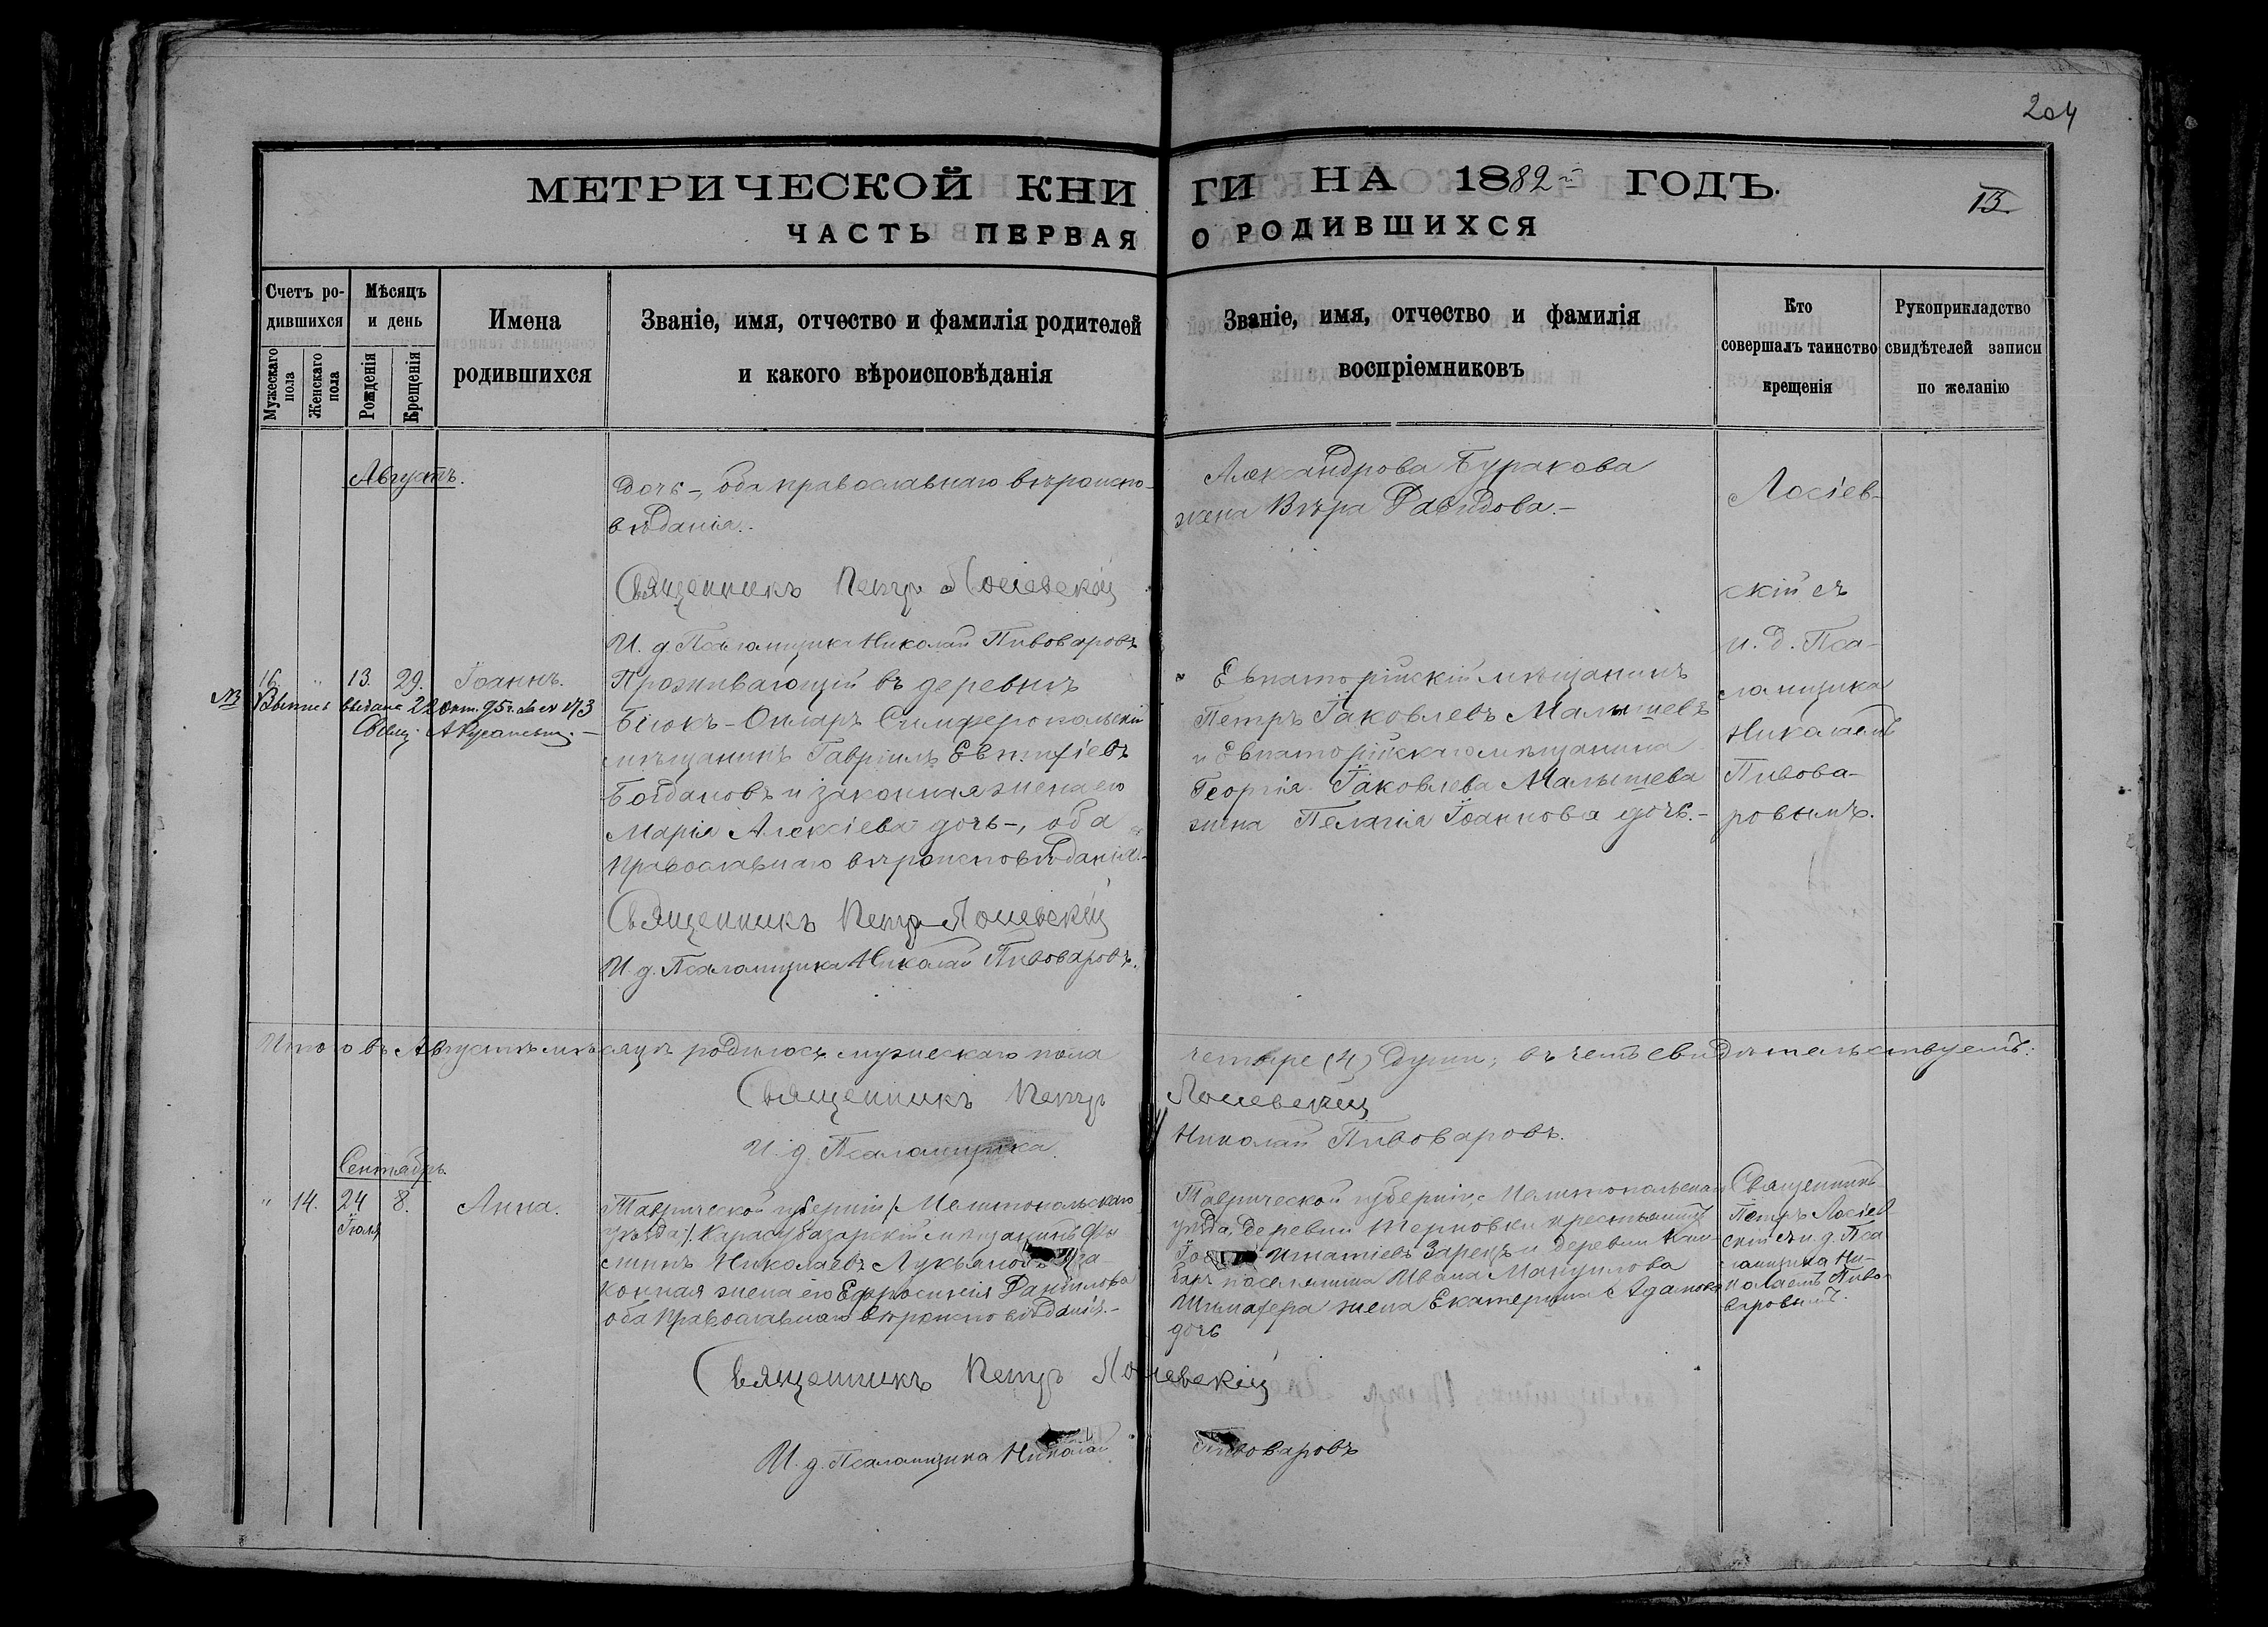 204
МЕТРИЧЕСКОЙ КНИ ГИ НА 1882й ГОДЪ.
13.
ЧАСТЬ ПЕРВАЯ О РОДИВШИХСЯ
Счетъ ро-
дившихся
Мужескаго
пола
Женскаго
пола
Мѣсяцъ
и день
Рожденія
Крещенія
Имена
родившихся
Званіе, имя, отчество и фамилія родителей
и какого вѣроисповѣданія
Званіе, имя, отчество и фамилія
воспріемниковъ
Кто
совершалъ таинство
крещенія
Рукоприкладство
свидѣтелей записи
по желанію
Августъ.
дочь-, оба православнаго вѣроиспо-
вѣданія.
Священникъ Петръ Лосіевскій
И. д. Псаломщика Николай Пивоваровъ
Александрова Буракова
жена Вѣра Давидова.-
Лосіев-
скій съ
и. д. Пса-
ломщика
Николаемъ
Пивова-
ровымъ.
16. " 13. 29. Іоаннъ.
выдана 22 окт. 95 г. за № 173
Свящ.
Проживающій въ деревнѣ
Біюкъ-Онларъ Симферопольскій
мѣщанинъ Гавріилъ Евтифіевъ
Богдановъ и законная жена его
Марія Алексіева дочь-, оба
православнаго вѣроисповѣданія.-
Священникъ Петръ Лосіевскій
И. д. Псаломщика Николай Пивоваровъ.
Евпаторійскій мѣщанинъ
Петръ Іаковлевъ Малышевъ
и Евпаторійскаго мѣщанина
Георгія Іаковлева Малышева
жена Пелагія Іоаннова дочь.-
Итого въ Августѣ мѣсяцѣ родилось мужескаго пола четыре (4) души; въ чемъ свидѣтельствуемъ:
Священникъ Петръ Лосіевскій
И. д. Псаломщика Николай Пивоваровъ.
Сентябрь
" 14. 24 8. Анна.
Іюля
Таврической губерніи /: Мелитопольскаго
уѣзда :/ Карасубазарскій мѣщанинъ
Николаевъ Лукьяновъ за-
конная жена его Ефросинія Даніилова
оба Православнаго вѣроисповѣданія.-
Таврической губерніи, Мелитопольскаго
уѣзда, деревни Терновки крестьянинъ
Игнатіевъ Зарецъ и деревни
поселянина Ивана Мануилова
жена Екатерина Адамова
дочь
Священникъ
Петръ Лосіев
скій съ и. д. Пса
ломщика Ни-
колаемъ Пиво-
варовымъ.
Священникъ Петръ Лосіевскій
И. д. Псаломщика Николай Пивоваровъ